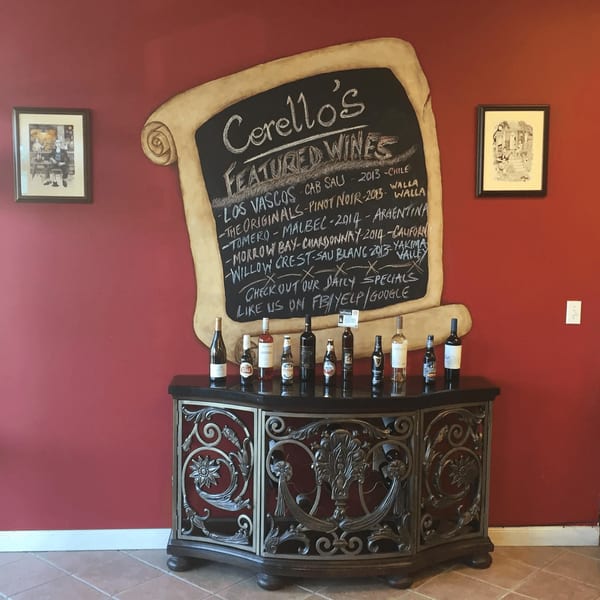 Cerello's
FEATURED WINES
-LOS VASCOS - CAB SAU - 2013 - CHILE
-THE ORIGINALS - PINOT NOIR - 2013 - WALLA WALLA
-TOMERO - MALBEC - 2014 - ARGENTINA
-MORROW BAY - CHARDONNAY - 2014 - CALIFORN
-WILLOW CREST - SAU BLANC - 2013 - YAKIMA VALLEY
CHECK OUT OUR DAILY SPECIALS
LIKE US ON FB/YELP/GOOGLE